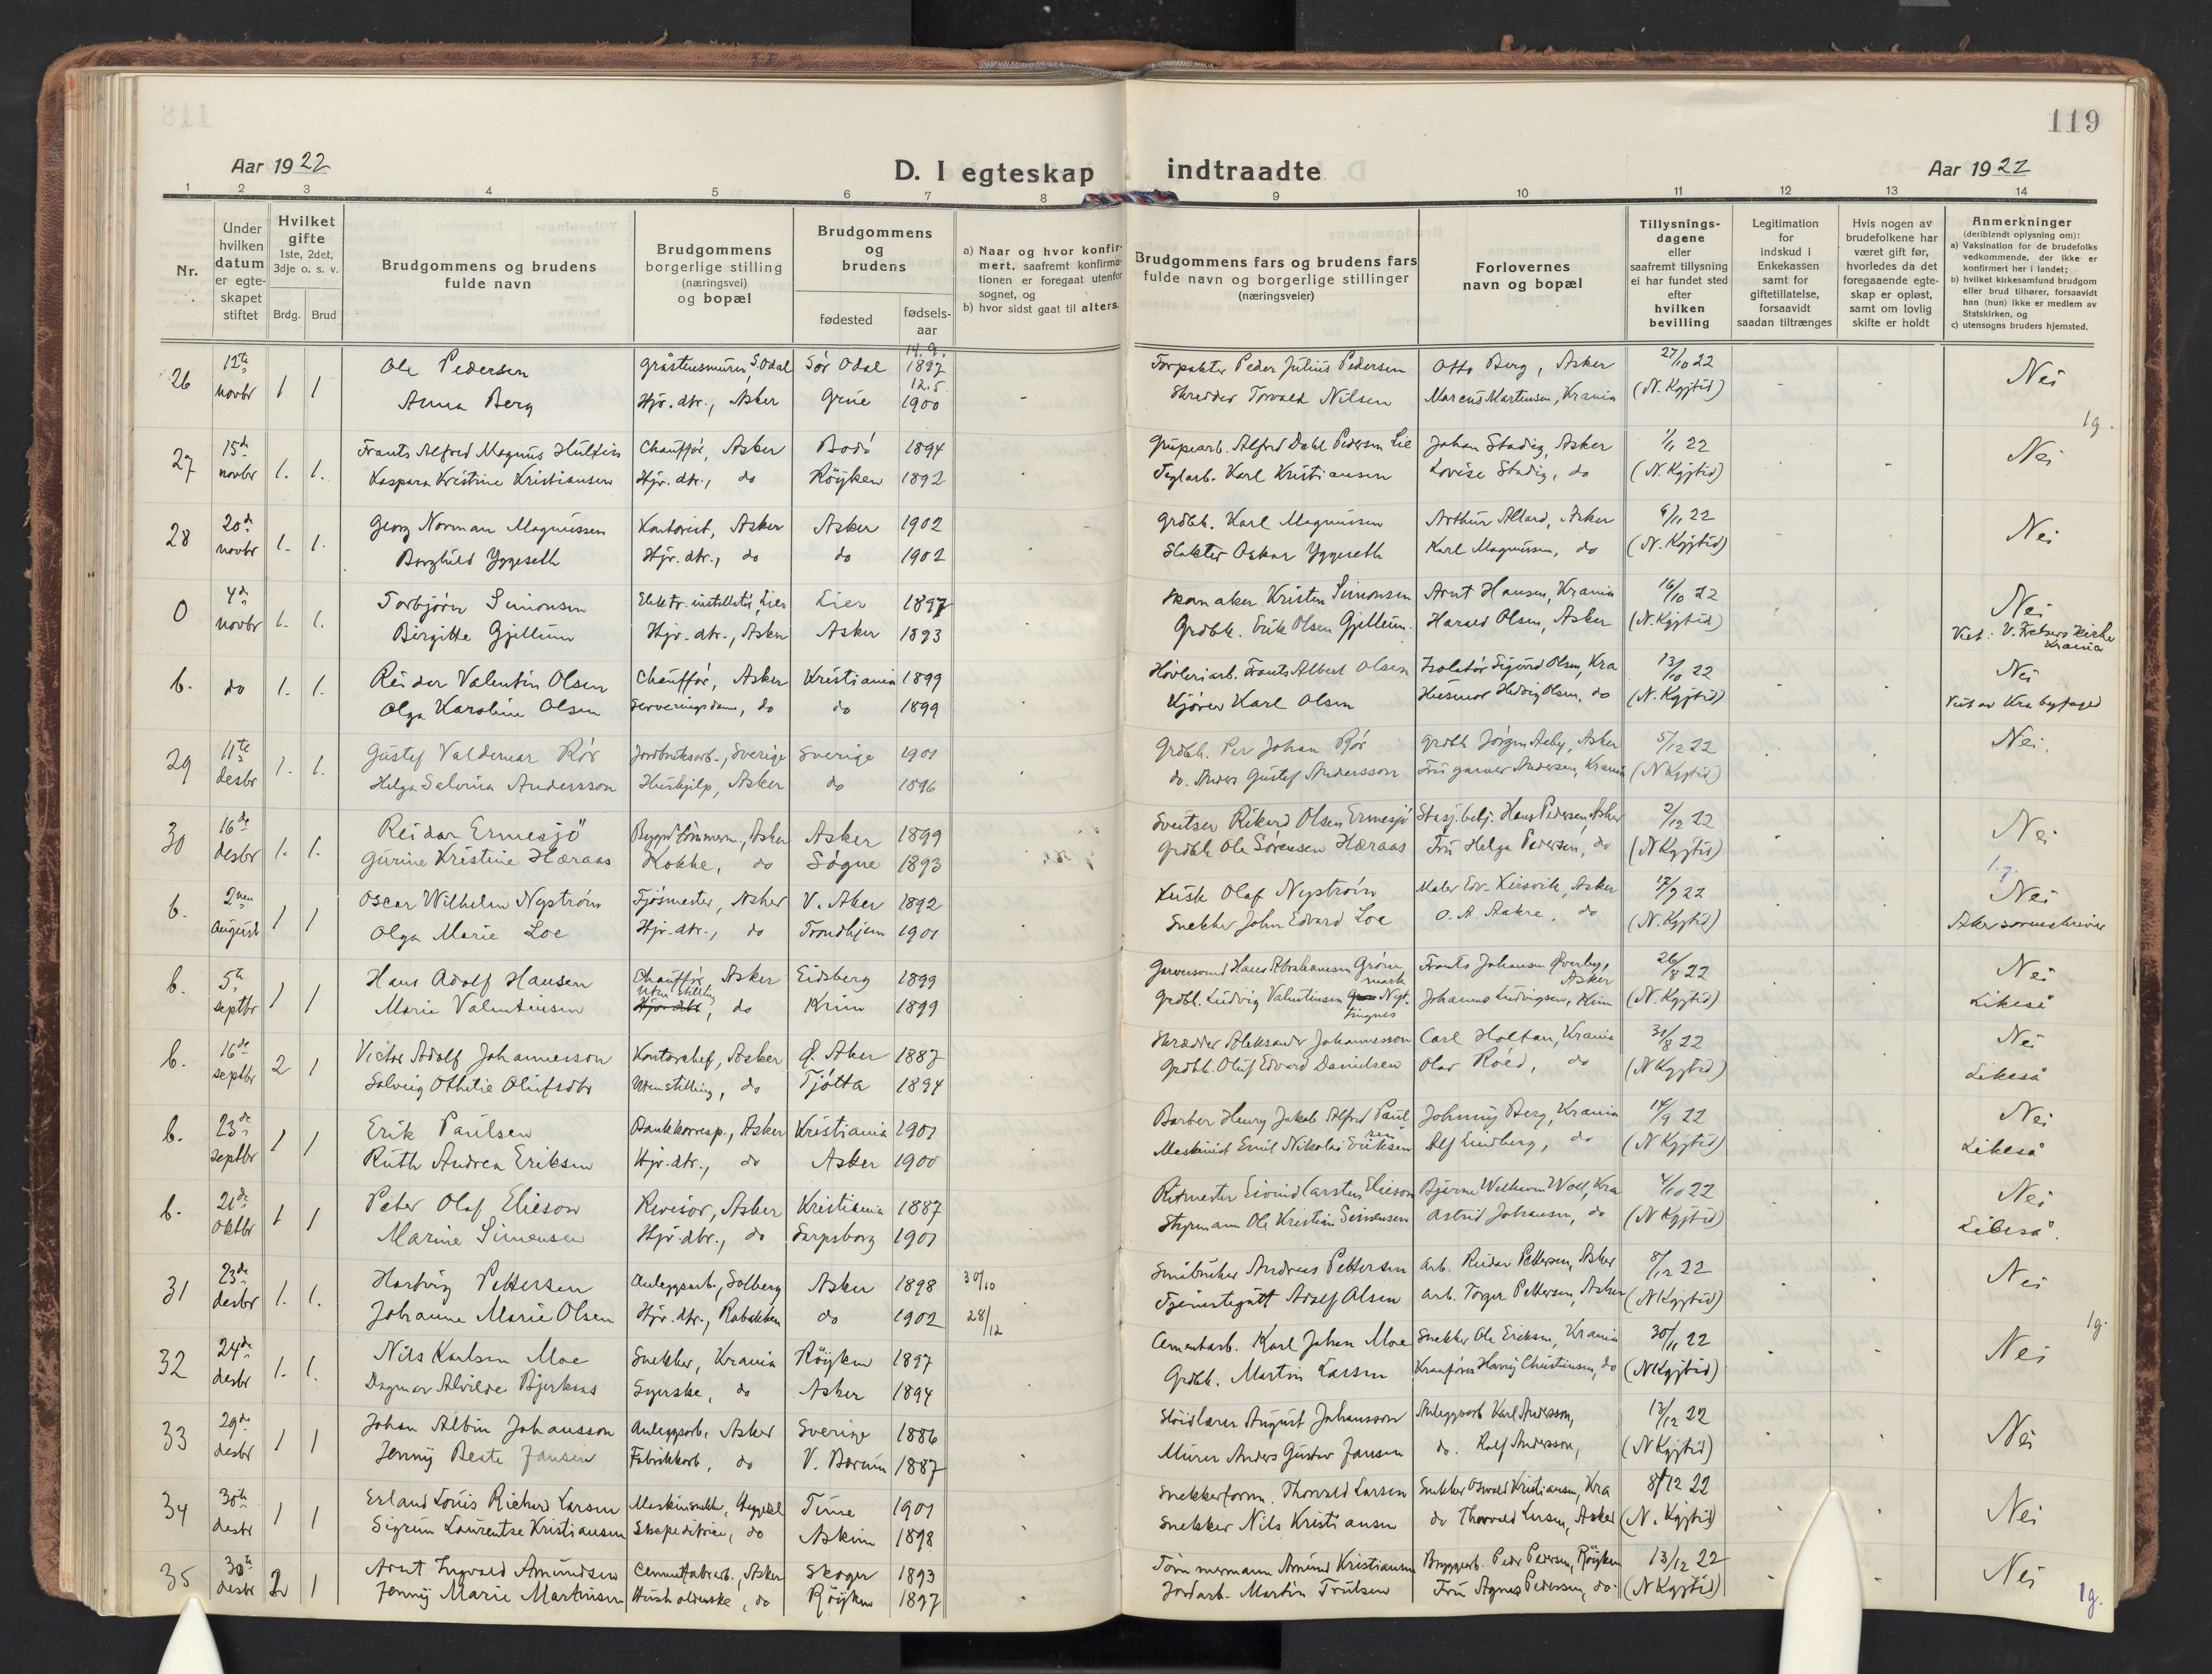 119
Aar 1922
D. I egteskap indtraadte
Aar 1922
1 2 3 4 5 6 7 8 9 10 11 12 13 14
Nr.
Under hvilken datum er egte-skapet stiftet
Hvilket gifte 1ste, 2det, 3dje o. s. v.
Brdg. Brud
Brudgommens og brudens fulde navn
Brudgommens borgerlige stilling (næringsvei) og bopæl
Brudgommens og brudens
fødested
fødsels-aar
a) Naar og hvor konfir-mert, saafremt konfirma-tionen er foregaat utenfor sognet, og
b) hvor sidst gaat til alters.
Brudgommens fars og brudens fars fulde navn og borgerlige stillinger (næringsveier)
Forlovernes navn og bopæl
Tillysnings-dagene eller saafremt tillysning ei har fundet sted efter hvilken bevilling
Legitimation for indskud i Enkekassen samt for giftetillatelse, forsaavidt saadan tiltrænges
Hvis nogen av brudefolkene har været gift før, hvorledes da det foregaaende egte-skap er opløst, samt om lovlig skifte er holdt
Anmerkninger (deriblandt oplysning om):
a) Vaksination for de brudefolks vedkommende, der ikke er konfirmert her i landet;
b) hvilket kirkesamfund brudgom eller brud tilhører, forsaavidt han (hun) ikke er medlem av Statskirken, og
c) utensogns bruders hjemsted.
26 12te novbr 1 1 Ole Pedersen Gråstensmurer, S. Odal Sør Odal 14.9. 1897 Forpakter Peder Julius Pedersen Otto Berg, Asker 27/10 22 Nei
Anna Berg Hjv. dtr., Asker Grue 12.5 1900 Skredder Torvald Nilsen Marcus Martinsen, Krania (N. Kgjtid)
1g.
27 15de novbr 1. 1. Frants Alfred Magnus Hultin Chauffør, Asker Bodø 1894 Grupearb. Alfred Dahl Pedersen Lie Johan Stadig, Asker 1/11 22 Nei
Kaspara Kristine Kristiansen Hjv. dtr., do Røyken 1892 Teglarb. Karl Kristiansen Lovise Stadig, do (N. Kgjtid)
28 20de novbr 1. 1. Georg Norman Magnussen Kontorist, Asker Asker 1902 Grdbk. Karl Magnussen Arthur Allard, Asker 6/11 22 Nei
Borghild Yggeseth Hjv. dtr., do do 1902 Slakter Oskar Yggeseth Karl Magnussen, do (N. Kgjtid)
0 4de novbr 1. 1. Torbjørn Simonsen Elektr. installatør, Lier Lier 1897 Skomaker Kristen Simonsen Arnt Hansen, Krania 16/10 22 Nei
Birgitte Gjellum Hjv. dtr., Asker Asker 1893 Grdbk. Erik Olsen Gjellum. Harald Olsen, Asker (N. Kgjtid) Viet: V. Frelsers Kirke Krania
b. do 1. 1. Reidar Valentin Olsen Chauffør, Asker Kristiania 1899 Høvleriarb. Frants Albert Olsen Isolatør Sigurd Olsen, Kra 13/10 22 Nei
Olga Karoline Olsen Serveringsdame, do do 1899 Kjører Karl Olsen Husmor Hedvig Olsen, do (N. Kgjtid) Viet av Kra byfoged
29 11te desbr 1. 1. Gustaf Valdemar Rör Jordbruksarb., Sverige Sverige 1901 Grdbk. Per Johan Rör Grdbk Jørgen Aaby, Asker 5/12 22 Nei.
Helga Salvina Andersson Hushjelp, Asker do 1896 do. Anders Gustaf Andersson Fru garver Andersen, Krania (N Kgjtid)
30 16de desbr 1. 1. Reidar Ermesjö Asker Asker 1899 Sveitser Rikard Olsen Ermesjö Stasj.betj. Hans Pedersen, Asker 2/12 22 Nei
Gurine Kristine Hæraas Kokke, do Søgne 1893 Grdbk Ole Sørensen Hæraas Fru Helga Pedersen, do (N Kgjtid)
1.g.
b. 2nen August 1 1 Oscar Wilhelm Nystrøm Fjøsmester, Asker V. Aker 1892 Kusk Olaf Nystrøm Maler Edv. Kirsvik, Asker 17/7 22 Nei
Olga Marie Loe Hjv. dtr., do Trondhjem 1901 Snekker John Edvard Loe O. A. Aakre, do (N. Kgjtid) Aker sorenskriver
b. 5te septbr 1 1 Hans Adolf Hansen Chauffør, Asker Eidsberg 1899 Garversvend Hans Abrahamsen Grønmark Frants Johansen Øverby, Asker 26/8 22 Nei
Marie Valentinsen Uten stilling, do Krim 1899 Grdbk. Ludvig Valentinsen Nyt-tingnes Johannes Ludvigsen, Krim (N. Kgjtid) Likeså
b. 16de septbr 2 1 Victor Adolf Johannesson Kontorchef, Asker Ø. Aker 1887 Skrædder Aleksander Johannesson Carl Holtan, Krania 31/8 22 Nei
Solveig Othilie Olufsdtr Uten stilling, do Tjøtta 1894 Grdbk. Oluf Edvard Danielsen Olav Røed, do (N Kgjtid) Likeså
b. 23de septbr 1 1 Erik Paulsen Bankkorresp., Asker Kristiania 1901 Barber Henry Jakob Alfred Paulsen Johnny Berg, Krania 14/9 22 Nei
Ruth Andrea Eriksen Hjv. dtr., do Asker 1900 Maskinist Emil Nikolai Eriksen Alf Lindberg, do (N Kgjtid) Likeså
b. 21de oktbr 1 1 Peter Olaf Elieson Revisor, Asker Kristiania 1887 Ritmester Eivind Carsten Elieson Bjarne Wilhelm Woll, Kra 4/10 22 Nei
Marine Simensen Hjv. dtr., do Sarpsborg 1901 Styrmann Ole Kristian Simensen Astrid Johansen, do (N Kgjtid) Likeså.
31 23de desbr 1. 1. Hartvig Pettersen Anleggsarb., Solberg Asker 1898 30/10 Småbruker Andreas Pettersen Arb. Reidar Pettersen, Asker 8/12 22 Nei
Johanne Marie Olsen Hjv. dtr., do 1902 28/12 Tjenestegutt Adolf Olsen Arb. Torger Pettersen, Asker (N Kgjtid)
1g.
32 24de desbr 1. 1. Nils Karlsen Moe Snekker, Krania Røyken 1897 Cementarb. Karl Johan Moe Snekker Ole Eriksen, Krania 30/11 22 Nei
Dagmar Alvilde Bjerkaas Syerske, do Asker 1894 Grdbk. Martin Larsen Christiansen, do (N Kgjtid)
33 29de desbr 1 1 Johan Albin Johansson Anleggsarb. Asker Sverige 1886 Sløidlærer August Johansson Anleggsarb Karl Andersson, 13/12 22 Nei
Jenny Beate Jansen Fabrikkarb, do V. Bærum 1887 Murer Anders Gustav Jansen do. Rolf Andersson, (N Kgjtid)
34 30te desbr 1 1 Erland Louis Richard Larsen Maskinsnekker, Heggedal Time 1901 Snekkerform. Thorvald Larsen Snekker Osvald Kristiansen, Kra 8/12 22 Nei
Sigrun Laurentse Kristiansen Ekspeditrice, do Askim 1898 Snekker Nils Kristiansen do Thorvald Larsen, Asker (N. Kgjtid)
35 30te desbr 2 1 Arnt Ingvald Amundsen Cementfabarb., Asker Skoger 1893 Tømmermann Amund Kristiansen Bryggerb. Peder Pedersen, Røyken 13/12 22 Nei
Jenny Marie Martinsen Husholderske, do Røyken 1897 Jordarb. Martin Trulsen Fru Agnes Pedersen, do. (N Kgjtid)
1g.